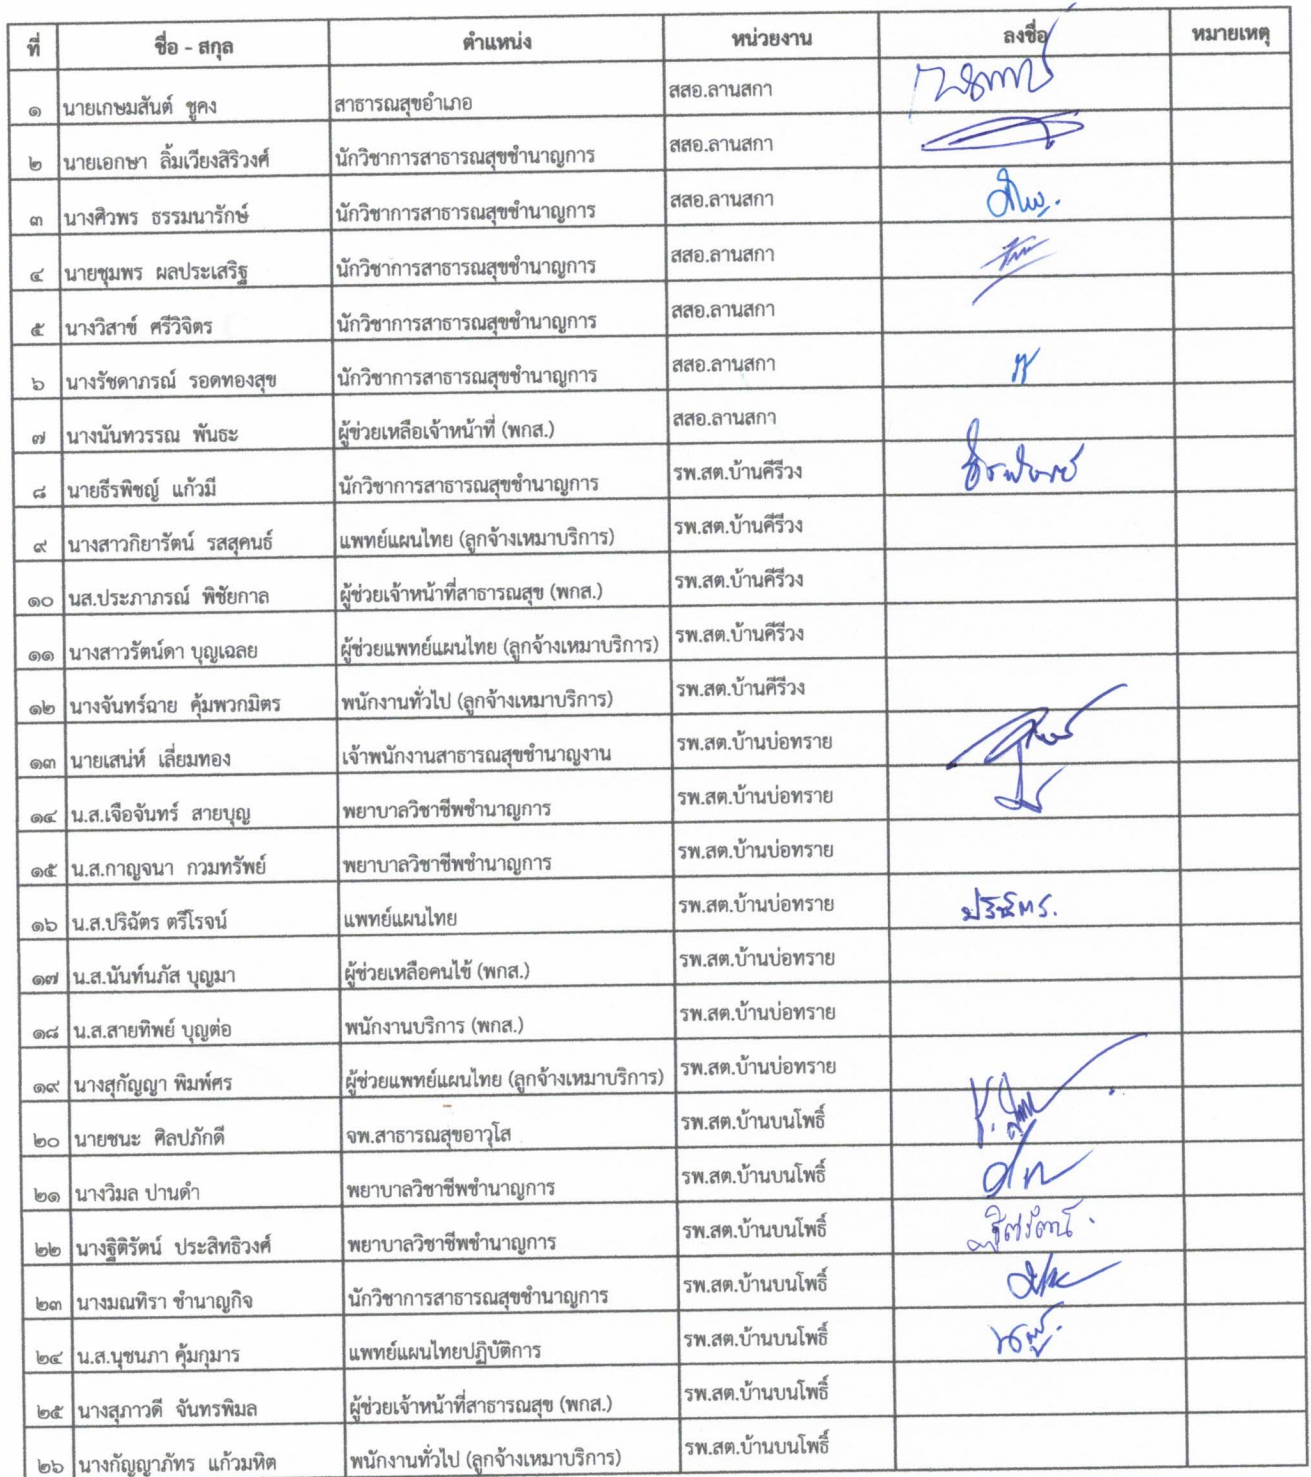 ที่ ชื่อ - สกุล ตำแหน่ง หน่วยงาน ลงชื่อ หมายเหตุ
๑ นายเกษมสันต์ ชูคง สาธารณสุขอำเภอ สสอ.ลานสกา
๒ นายเอกษา ลิ้มเวียงสิริวงศ์ นักวิชาการสาธารณสุขชำนาญการ สสอ.ลานสกา
๓ นางศิวพร ธรรมนารักษ์ นักวิชาการสาธารณสุขชำนาญการ สสอ.ลานสกา
๔ นายชุมพร ผลประเสริฐ นักวิชาการสาธารณสุขชำนาญการ สสอ.ลานสกา
๕ นางวิสาข์ ศรีวิจิตร นักวิชาการสาธารณสุขชำนาญการ สสอ.ลานสกา
๖ นางรัชดาภรณ์ รอดทองสุข นักวิชาการสาธารณสุขชำนาญการ สสอ.ลานสกา
๗ นางนันทวรรณ พันธะ ผู้ช่วยเหลือเจ้าหน้าที่ (พกส.) สสอ.ลานสกา
๘ นายธีรพิชญ์ แก้วมี นักวิชาการสาธารณสุขชำนาญการ รพ.สต.บ้านคีรีวง ธีรพิชญ์
๙ นางสาวกิยารัตน์ รสสุคนธ์ แพทย์แผนไทย (ลูกจ้างเหมาบริการ) รพ.สต.บ้านคีรีวง
๑๐ นส.ประภาภรณ์ พิชัยกาล ผู้ช่วยเจ้าหน้าที่สาธารณสุข (พกส.) รพ.สต.บ้านคีรีวง
๑๑ นางสาวรัตน์ดา บุญเฉลย ผู้ช่วยแพทย์แผนไทย (ลูกจ้างเหมาบริการ) รพ.สต.บ้านคีรีวง
๑๒ นางจันทร์ฉาย คุ้มพวกมิตร พนักงานทั่วไป (ลูกจ้างเหมาบริการ) รพ.สต.บ้านคีรีวง
๑๓ นายเสน่ห์ เลี่ยมทอง เจ้าพนักงานสาธารณสุขชำนาญงาน รพ.สต.บ้านบ่อทราย
๑๔ น.ส.เจือจันทร์ สายบุญ พยาบาลวิชาชีพชำนาญการ รพ.สต.บ้านบ่อทราย
๑๕ น.ส.กาญจนา กวมทรัพย์ พยาบาลวิชาชีพชำนาญการ รพ.สต.บ้านบ่อทราย
๑๖ น.ส.ปริฉัตร ตรีโรจน์ แพทย์แผนไทย รพ.สต.บ้านบ่อทราย ปริฉัตร.
๑๗ น.ส.นันท์นภัส บุญมา ผู้ช่วยเหลือคนไข้ (พกส.) รพ.สต.บ้านบ่อทราย
๑๘ น.ส.สายทิพย์ บุญต่อ พนักงานบริการ (พกส.) รพ.สต.บ้านบ่อทราย
๑๙ นางสุกัญญา พิมพ์ศร ผู้ช่วยแพทย์แผนไทย (ลูกจ้างเหมาบริการ) รพ.สต.บ้านบ่อทราย
๒๐ นายชนะ ศิลปภักดี จพ.สาธารณสุขอาวุโส รพ.สต.บ้านบนโพธิ์
๒๑ นางวิมล ปานดำ พยาบาลวิชาชีพชำนาญการ รพ.สต.บ้านบนโพธิ์
๒๒ นางฐิติรัตน์ ประสิทธิวงศ์ พยาบาลวิชาชีพชำนาญการ รพ.สต.บ้านบนโพธิ์ ฐิติรัตน์
๒๓ นางมณทิรา ชำนาญกิจ นักวิชาการสาธารณสุขชำนาญการ รพ.สต.บ้านบนโพธิ์
๒๔ น.ส.นุชนภา คุ้มกุมาร แพทย์แผนไทยปฏิบัติการ รพ.สต.บ้านบนโพธิ์
๒๕ นางสุภาวดี จันทรพิมล ผู้ช่วยเจ้าหน้าที่สาธารณสุข (พกส.) รพ.สต.บ้านบนโพธิ์
๒๖ นางกัญญาภัทร แก้วมหิต พนักงานทั่วไป (ลูกจ้างเหมาบริการ) รพ.สต.บ้านบนโพธิ์